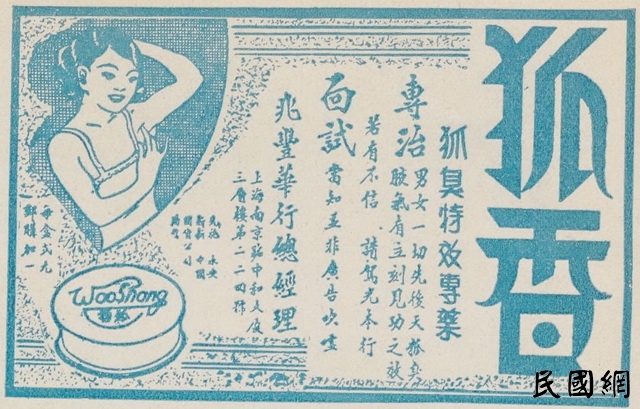 狐香
狐臭特效專藥
專治
男女一切先後天狐臭
腋氣有立刻見功之效
若有不信請駕光本行
面試
當知並非廣告吹噓
兆豐華行總經理
上海南京路中和大廈
三層樓第二二四號
永安
新新 中國
國貨公司
每盒弍元
郵購加一
WooShang
香狐
民國網